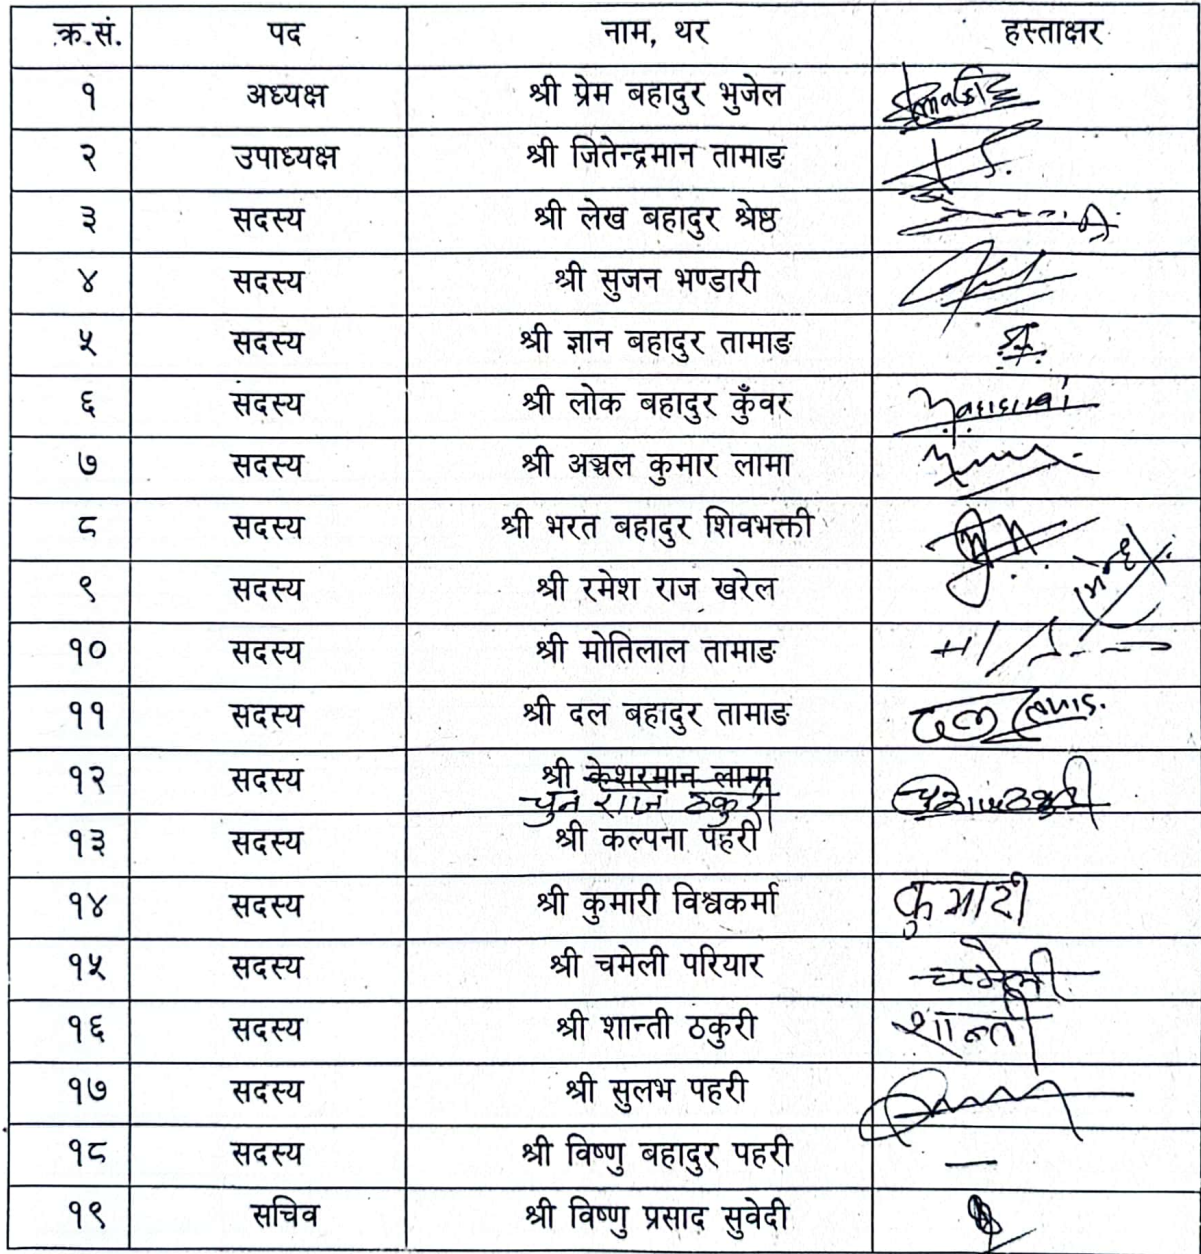 क्र.सं. पद नाम, थर हस्ताक्षर
१ अध्यक्ष श्री प्रेम बहादुर भुजेल
२ उपाध्यक्ष श्री जितेन्द्रमान तामाङ
३ सदस्य श्री लेख बहादुर श्रेष्ठ
४ सदस्य श्री सुजन भण्डारी
५ सदस्य श्री ज्ञान बहादुर तामाङ
६ सदस्य श्री लोक बहादुर कुँवर
७ सदस्य श्री अञ्चल कुमार लामा
८ सदस्य श्री भरत बहादुर शिवभक्ती
९ सदस्य श्री रमेश राज खरेल
१० सदस्य श्री मोतिलाल तामाङ
११ सदस्य श्री दल बहादुर तामाङ
१२ सदस्य श्री केशरमान लामा
चुन राज ठकुरी
१३ सदस्य श्री कल्पना पहरी
१४ सदस्य श्री कुमारी विश्वकर्मा कुमारी
१५ सदस्य श्री चमेली परियार चमेली
१६ सदस्य श्री शान्ती ठकुरी शान्ती
१७ सदस्य श्री सुलभ पहरी
१८ सदस्य श्री विष्णु बहादुर पहरी —
१९ सचिव श्री विष्णु प्रसाद सुवेदी